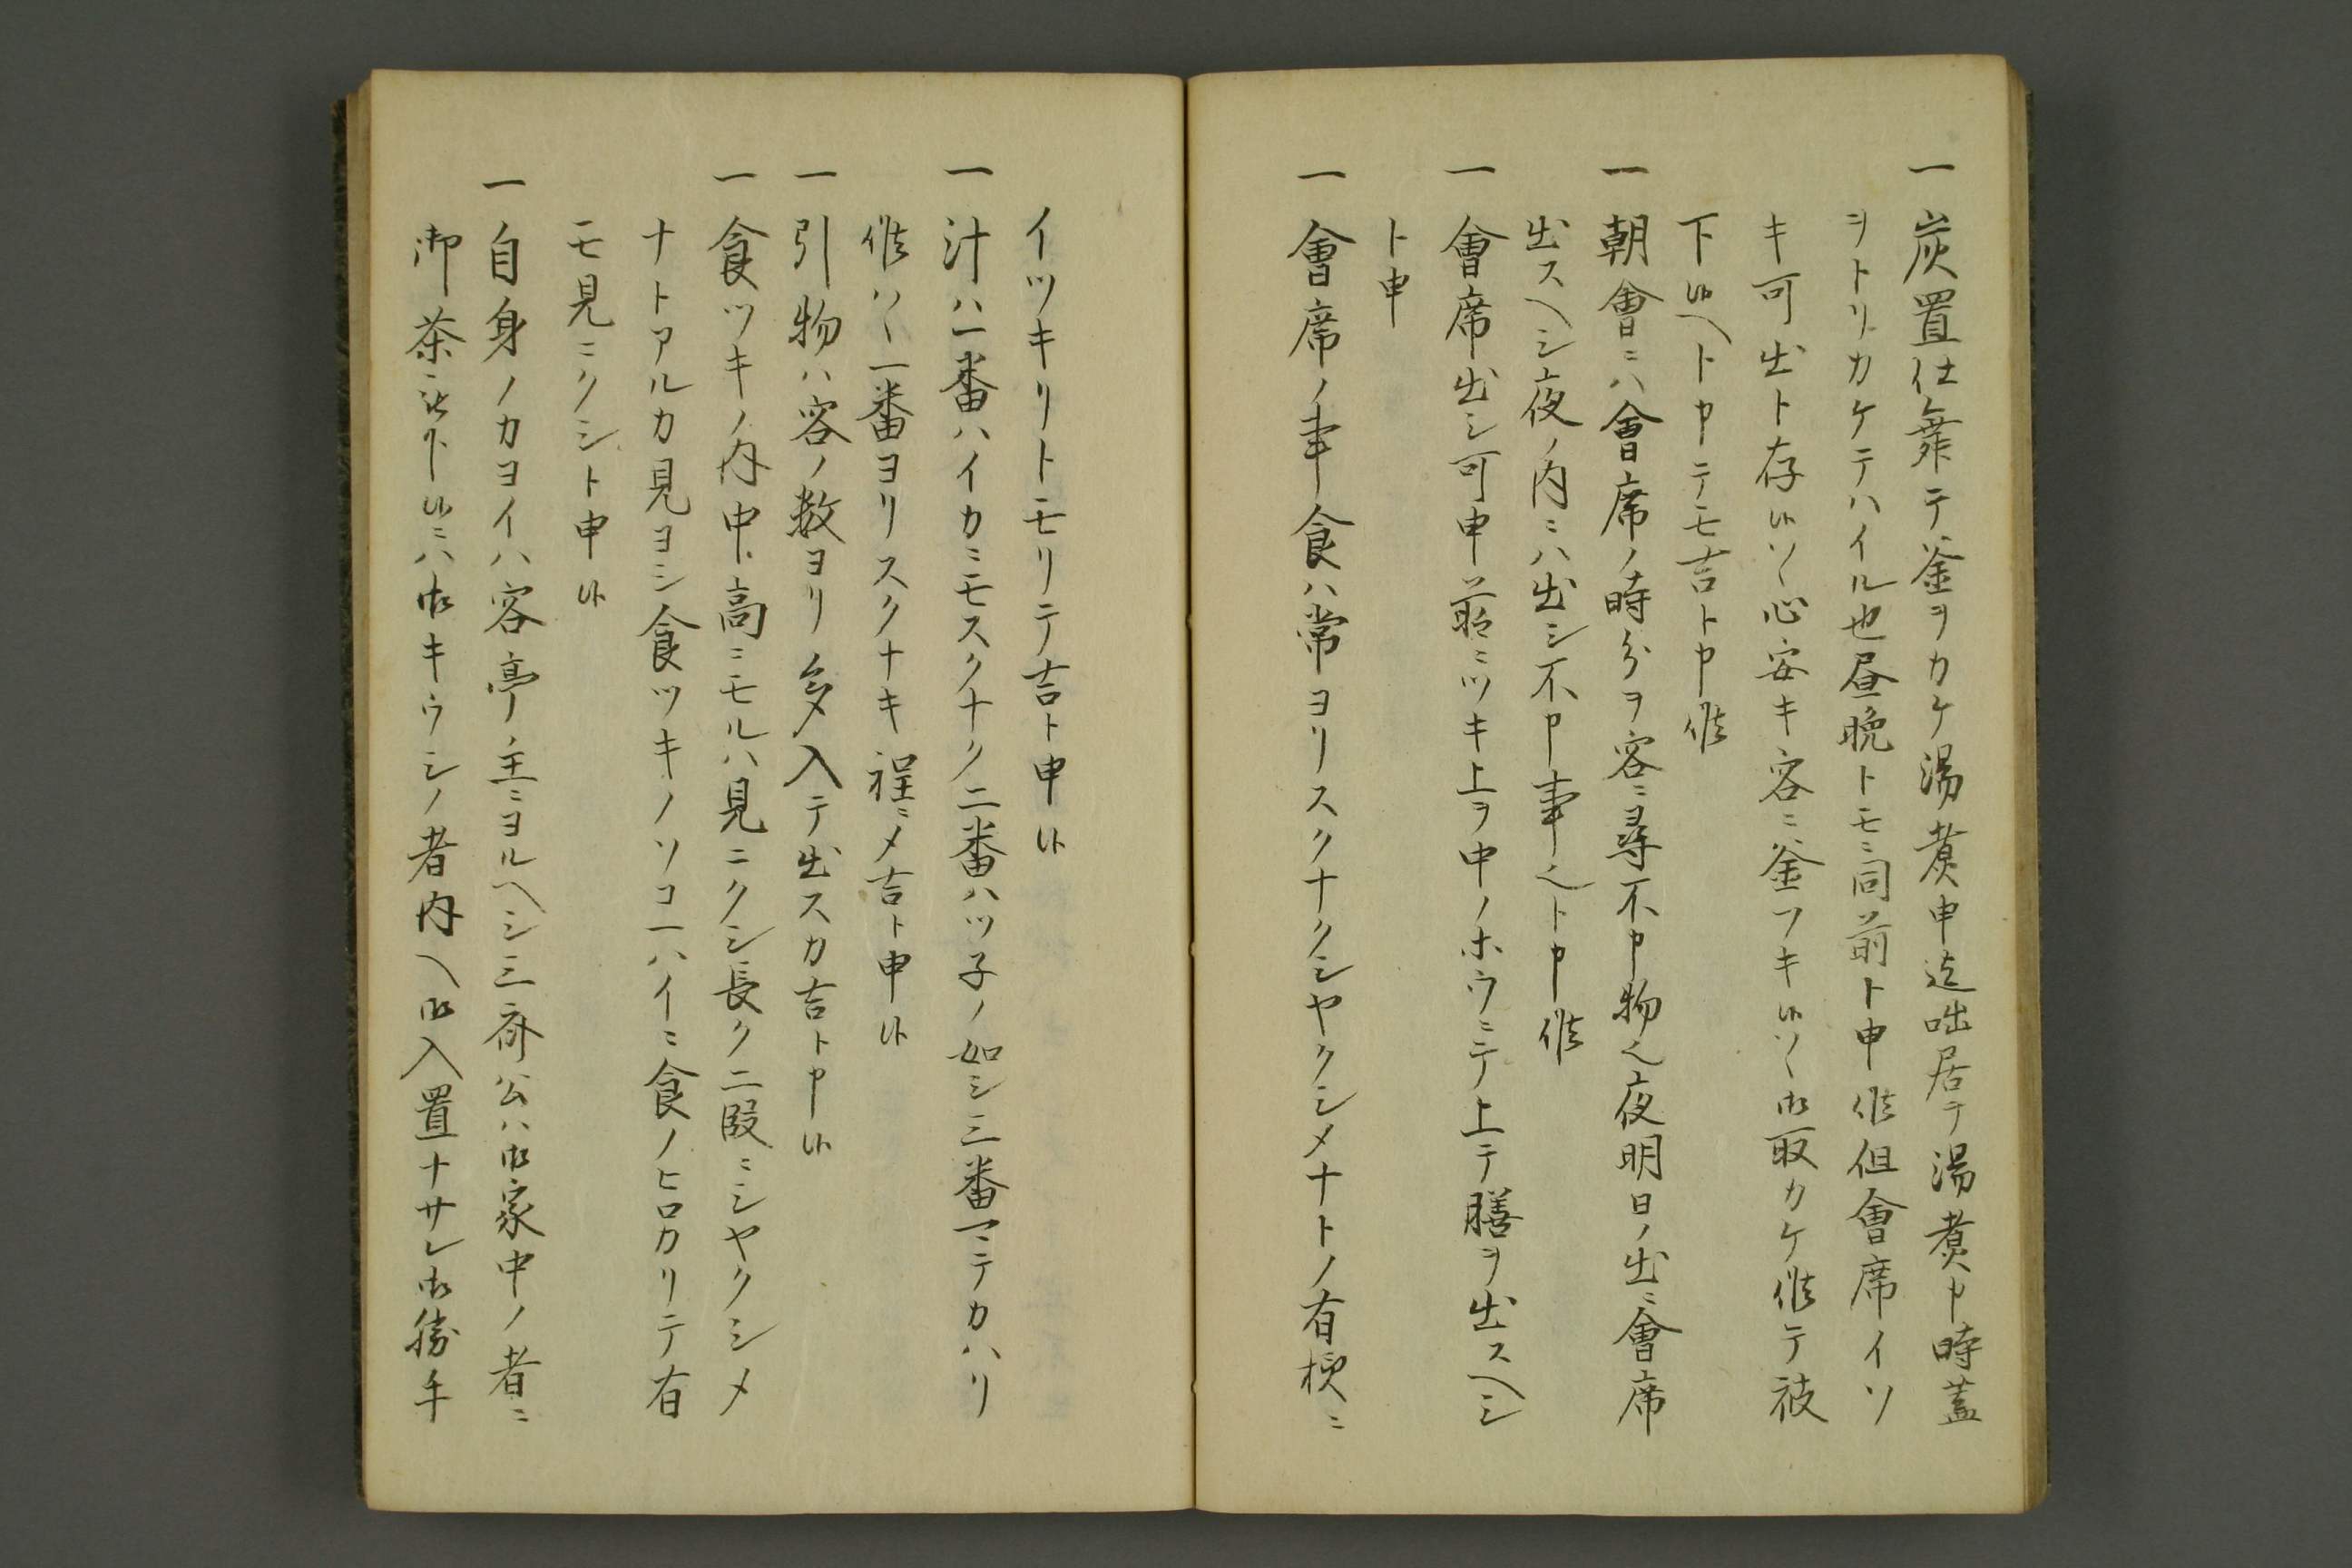 一炭置仕舞テ釜ヲカケ湯煮申迄咄居テ湯煮申時蓋
ヲトリカケテハイル也昼晩トモニ同前ト申候但會席イソ
キ可出ト存候ハヽ心安キ客ニ釜ツキ候ハヽ御取カケ候テ被
下候ヘト申テモ吉ト申候
一朝會ニハ會席ノ時分ヲ客ニ尋不申物也夜明日ノ出ニ會席
出スヘシ夜ノ内ニハ出シ不申事也ト申候
一會席出シ可申前ニツキ上ヲ中ノホウニテ上テ膳ヲ出スヘシ
ト申
一會席ノ事食ハ常ヨリスクナクシヤクシメナトノ有様ニ
イツキリトモリテ吉ト申候
一汁ハ一番ハイカニモスクナク二番ハツ子ノ如シ三番マテカハリ
候ハヽ一番ヨリスクナキ程ニメ吉ト申候
一引物ハ客ノ数ヨリ多入テ出スカ吉ト申候
一食ツキノ内中高ニモルハ見ニクシ長ク二段ニシヤクシメ
ナトアルカ見ヨシ食ツキノソコ一ハイニ食ノヒロカリテ有
モ見ニクシト申候
一自身ノカヨイハ客亭ノ主ニヨルヘシ三斎公ハ御家中ノ者ニ
御茶被下候ニハ御キウシノ者内ヘ御入置ナサレ御勝手